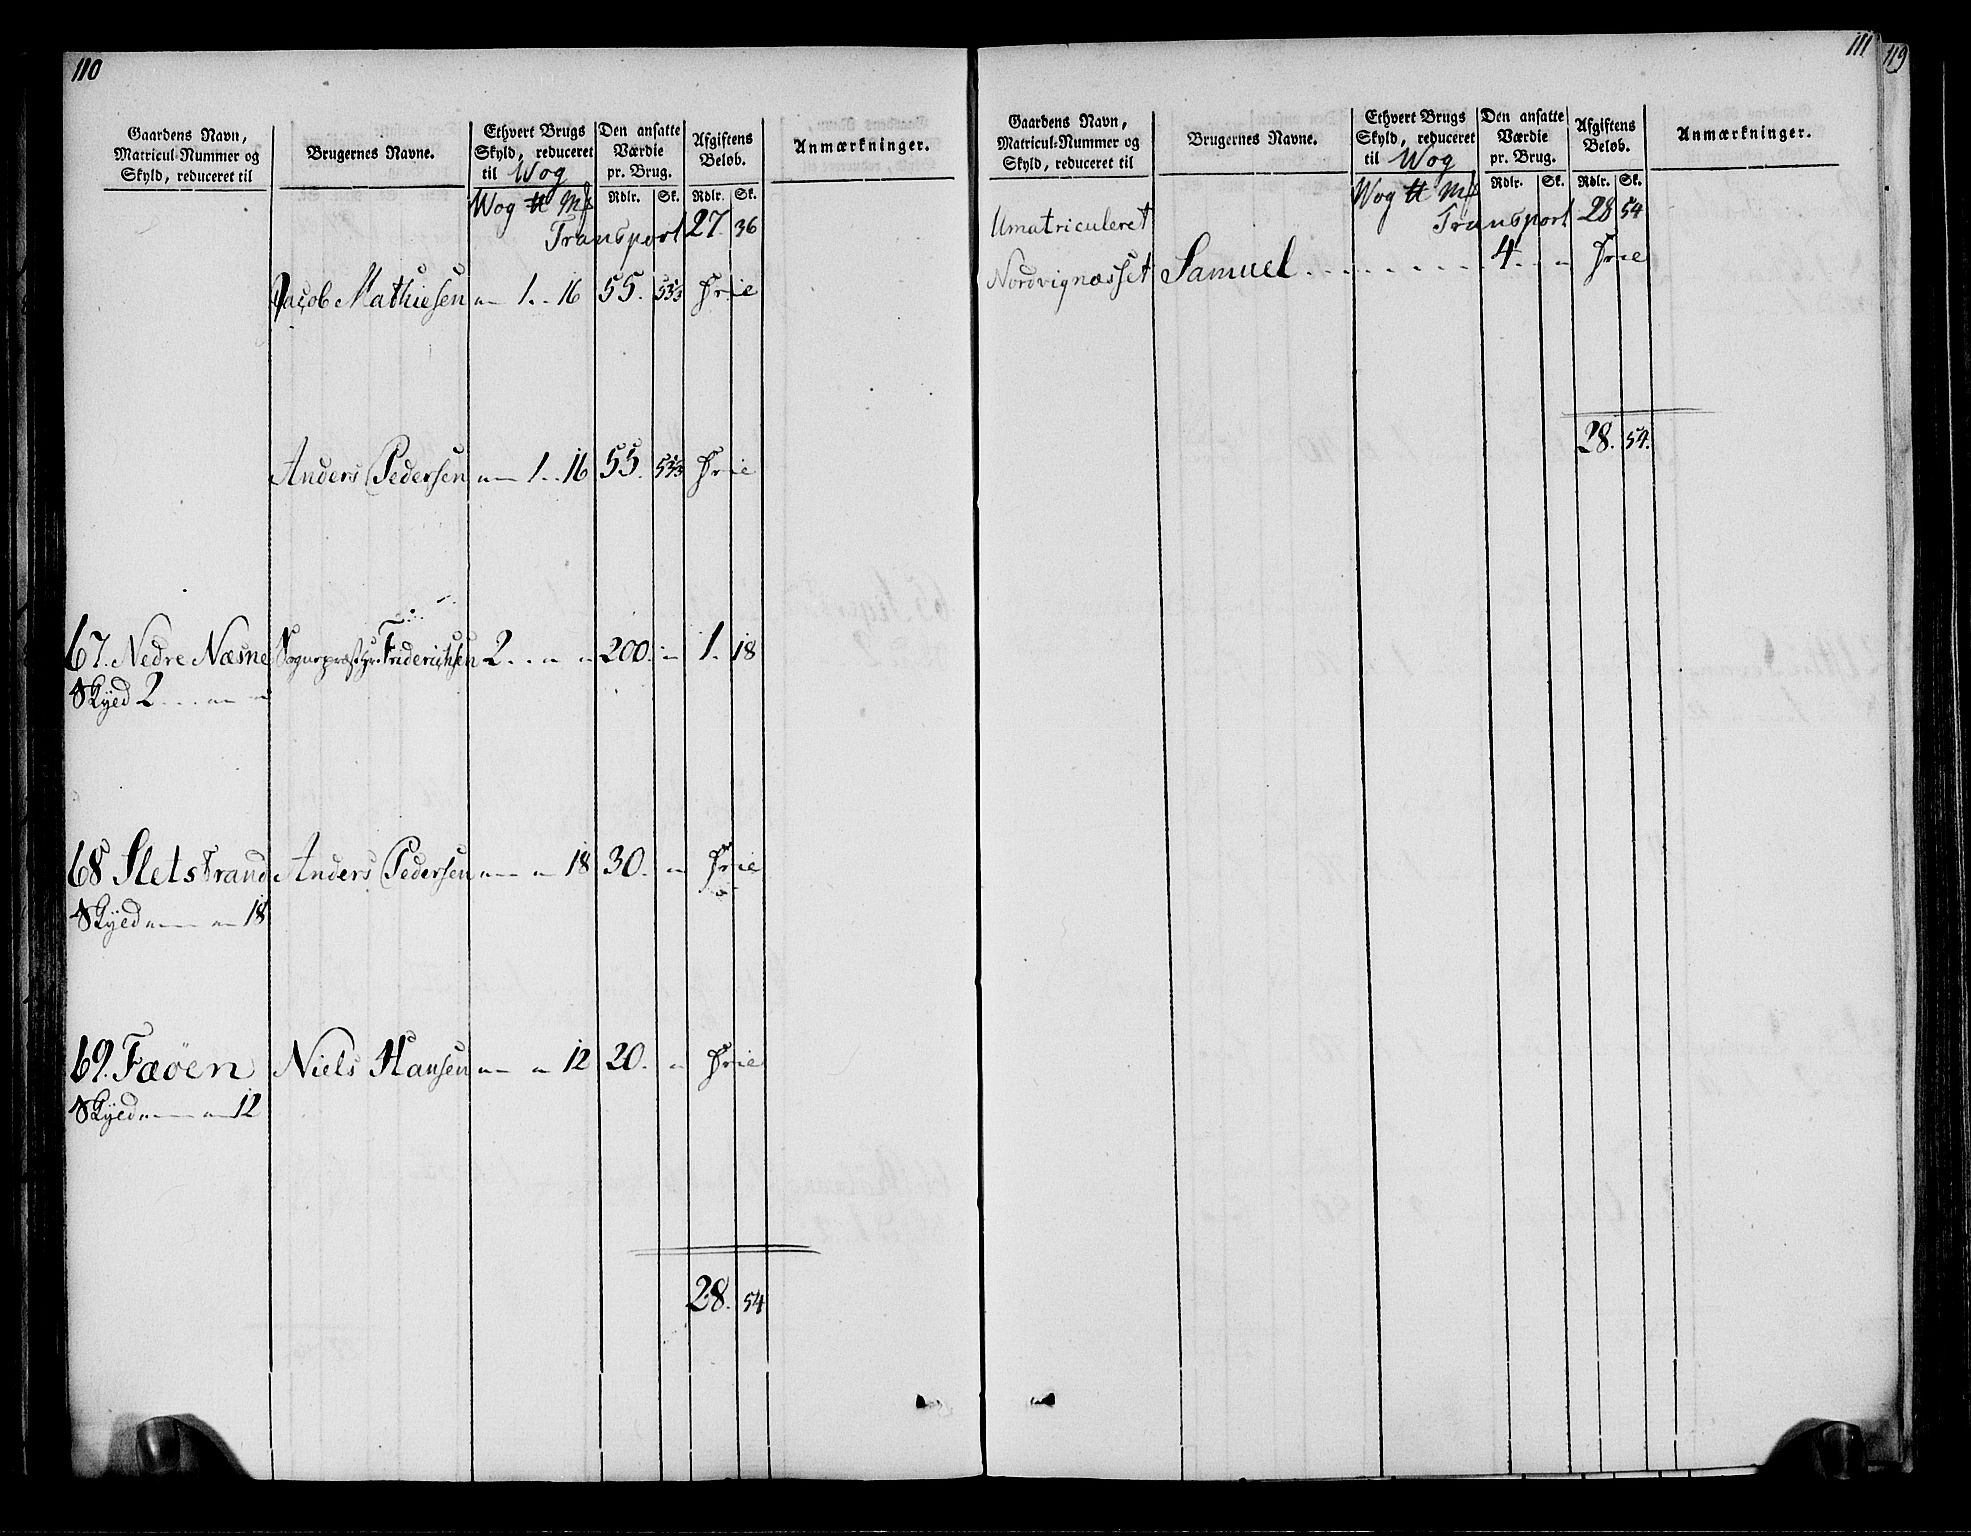 110
Gaardens Navn,
Matricul-Nummer og
Skyld, reduceret til
Brugernes Navne.
Ethvert Brugs
Skyld, reduceret
til Wog
Den ansatte
Værdie
pr. Brug.
Afgiftens
Beløb.
Anmærkninger.
Wog ℔ Mk Rdlr. Sk. Rdlr. Sk.
Transport 27. 36
Jacob Mathiesen " 1 " 16 55. 53⅓ Frie
Anders Pedersen " 1 " 16 55. 53⅓ Frie
67. Nedre Næsne Sognepræst Hr. Friderichsen 2 " " 200. " 1. 18
Skyld 2 " "
68 Sletstrand Anders Pedersen " " 18 30. " Frie
Skyld " " 18
69. Fæøen Niels Hansen " " 12 20. " Frie
Skyld " " 12
28. 54
111
119
Gaardens Navn,
Matricul-Nummer og
Skyld, reduceret til
Brugernes Navne.
Ethvert Brugs
Skyld, reduceret
til Wog
Den ansatte
Værdie
pr. Brug.
Afgiftens
Beløb.
Anmærkninger.
Wog ℔ Mk Rdlr. Sk. Rdlr. Sk.
Umatriculeret Transport 28 54
Nordvignæsset Samuel 4. " Frie
28. 54.